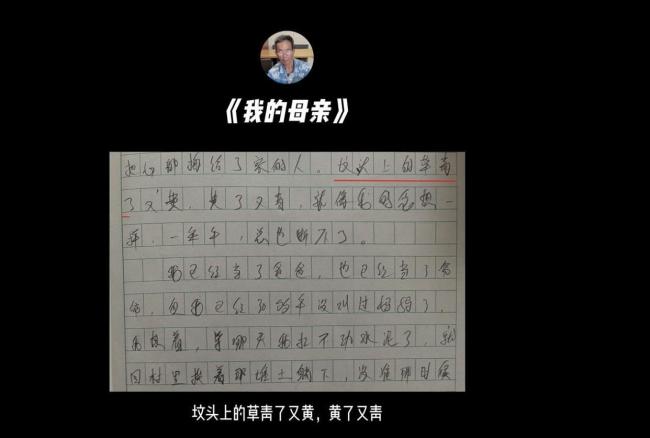 《我的母亲》
把心都掏给了家的人。坟头上的草青
了又黄，黄了又青，就像我的思想一
样，一年年，总也断不了。
我已经当了爸爸，也已经当了爷
爷，但我已经好多年没叫过妈妈了。
我想着，等哪天我扛不动水泥了，就
回村里挨着那堆土躺下，没准那时候
坟头上的草青了又黄，黄了又青